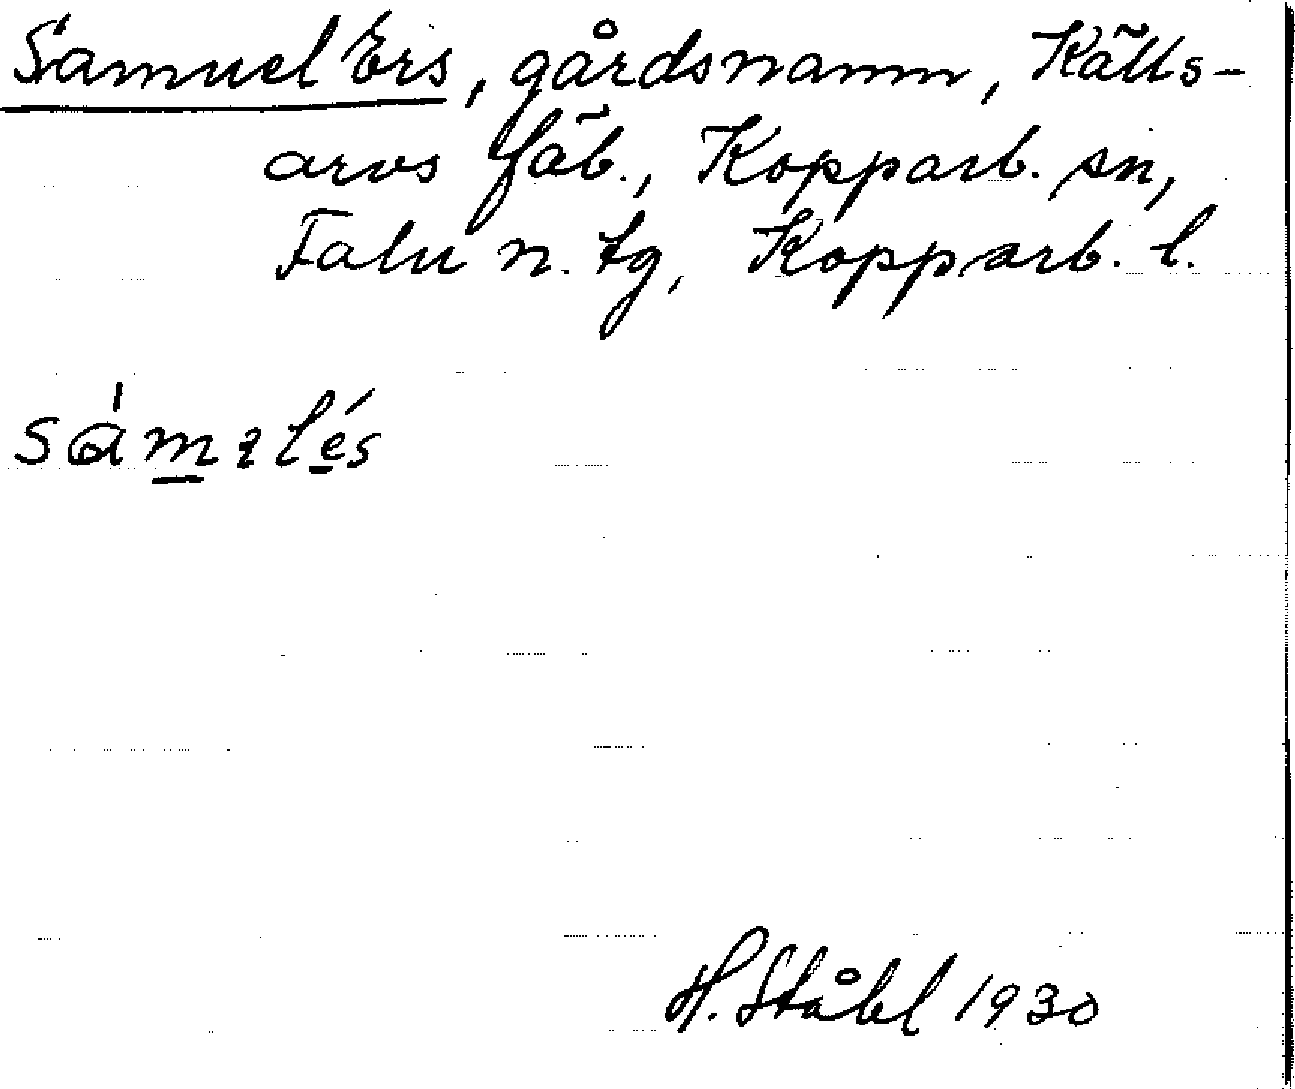 Samuel Ers, gårdsnamn, Källs-
arvs fäb., Kopparb. sn,
Falu n. tg, Kopparb. l.
H. Ståhl 1930